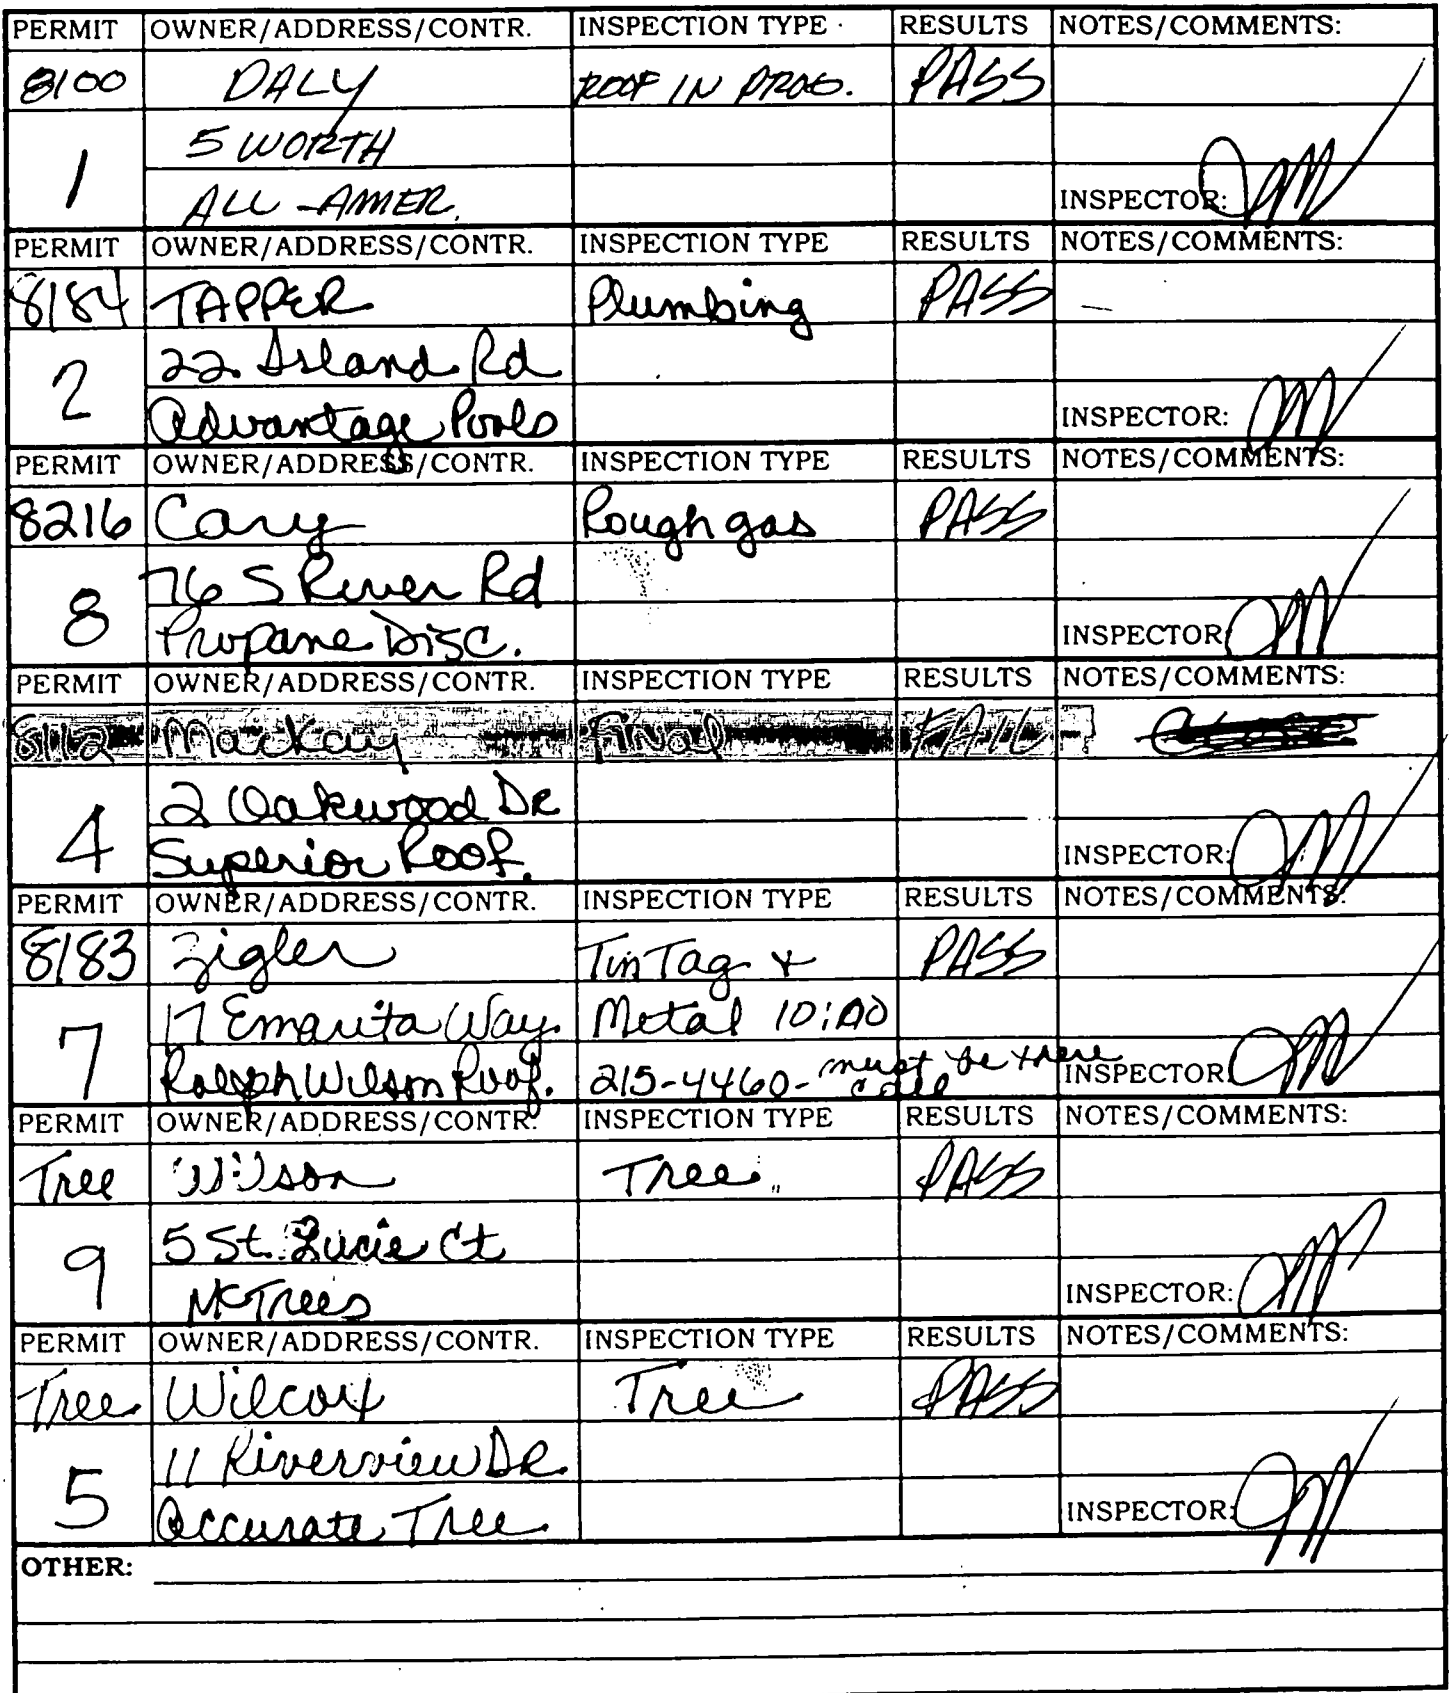 PERMIT OWNER/ADDRESS/CONTR. INSPECTION TYPE RESULTS NOTES/COMMENTS:
8100 DALY ROOF IN PROG. PASS
5 WORTH
1 ALL-AMER. INSPECTOR:
PERMIT OWNER/ADDRESS/CONTR. INSPECTION TYPE RESULTS NOTES/COMMENTS:
8184 TAPPER Plumbing PASS
22 Island Rd
2 Advantage Pools INSPECTOR:
PERMIT OWNER/ADDRESS/CONTR. INSPECTION TYPE RESULTS NOTES/COMMENTS:
8216 Cary Rough gas PASS
76 S River Rd
8 Propane Disc. INSPECTOR:
PERMIT OWNER/ADDRESS/CONTR. INSPECTION TYPE RESULTS NOTES/COMMENTS:
8112 Mackay Final FAIL
2 Oakwood DR
4 Superior Roof. INSPECTOR:
PERMIT OWNER/ADDRESS/CONTR. INSPECTION TYPE RESULTS NOTES/COMMENTS:
8183 Zigler Tin Tag + PASS
17 Emarita Way. Metal 10:00
7 Ralph Wilson Roof. 215-4460- must be there INSPECTOR:
call
PERMIT OWNER/ADDRESS/CONTR. INSPECTION TYPE RESULTS NOTES/COMMENTS:
Tree Wilson Tree PASS
5 St. Lucie Ct
9 McTrees INSPECTOR:
PERMIT OWNER/ADDRESS/CONTR. INSPECTION TYPE RESULTS NOTES/COMMENTS:
Tree Wilcox Tree PASS
11 Riverview DR
5 Accurate Tree INSPECTOR:
OTHER: